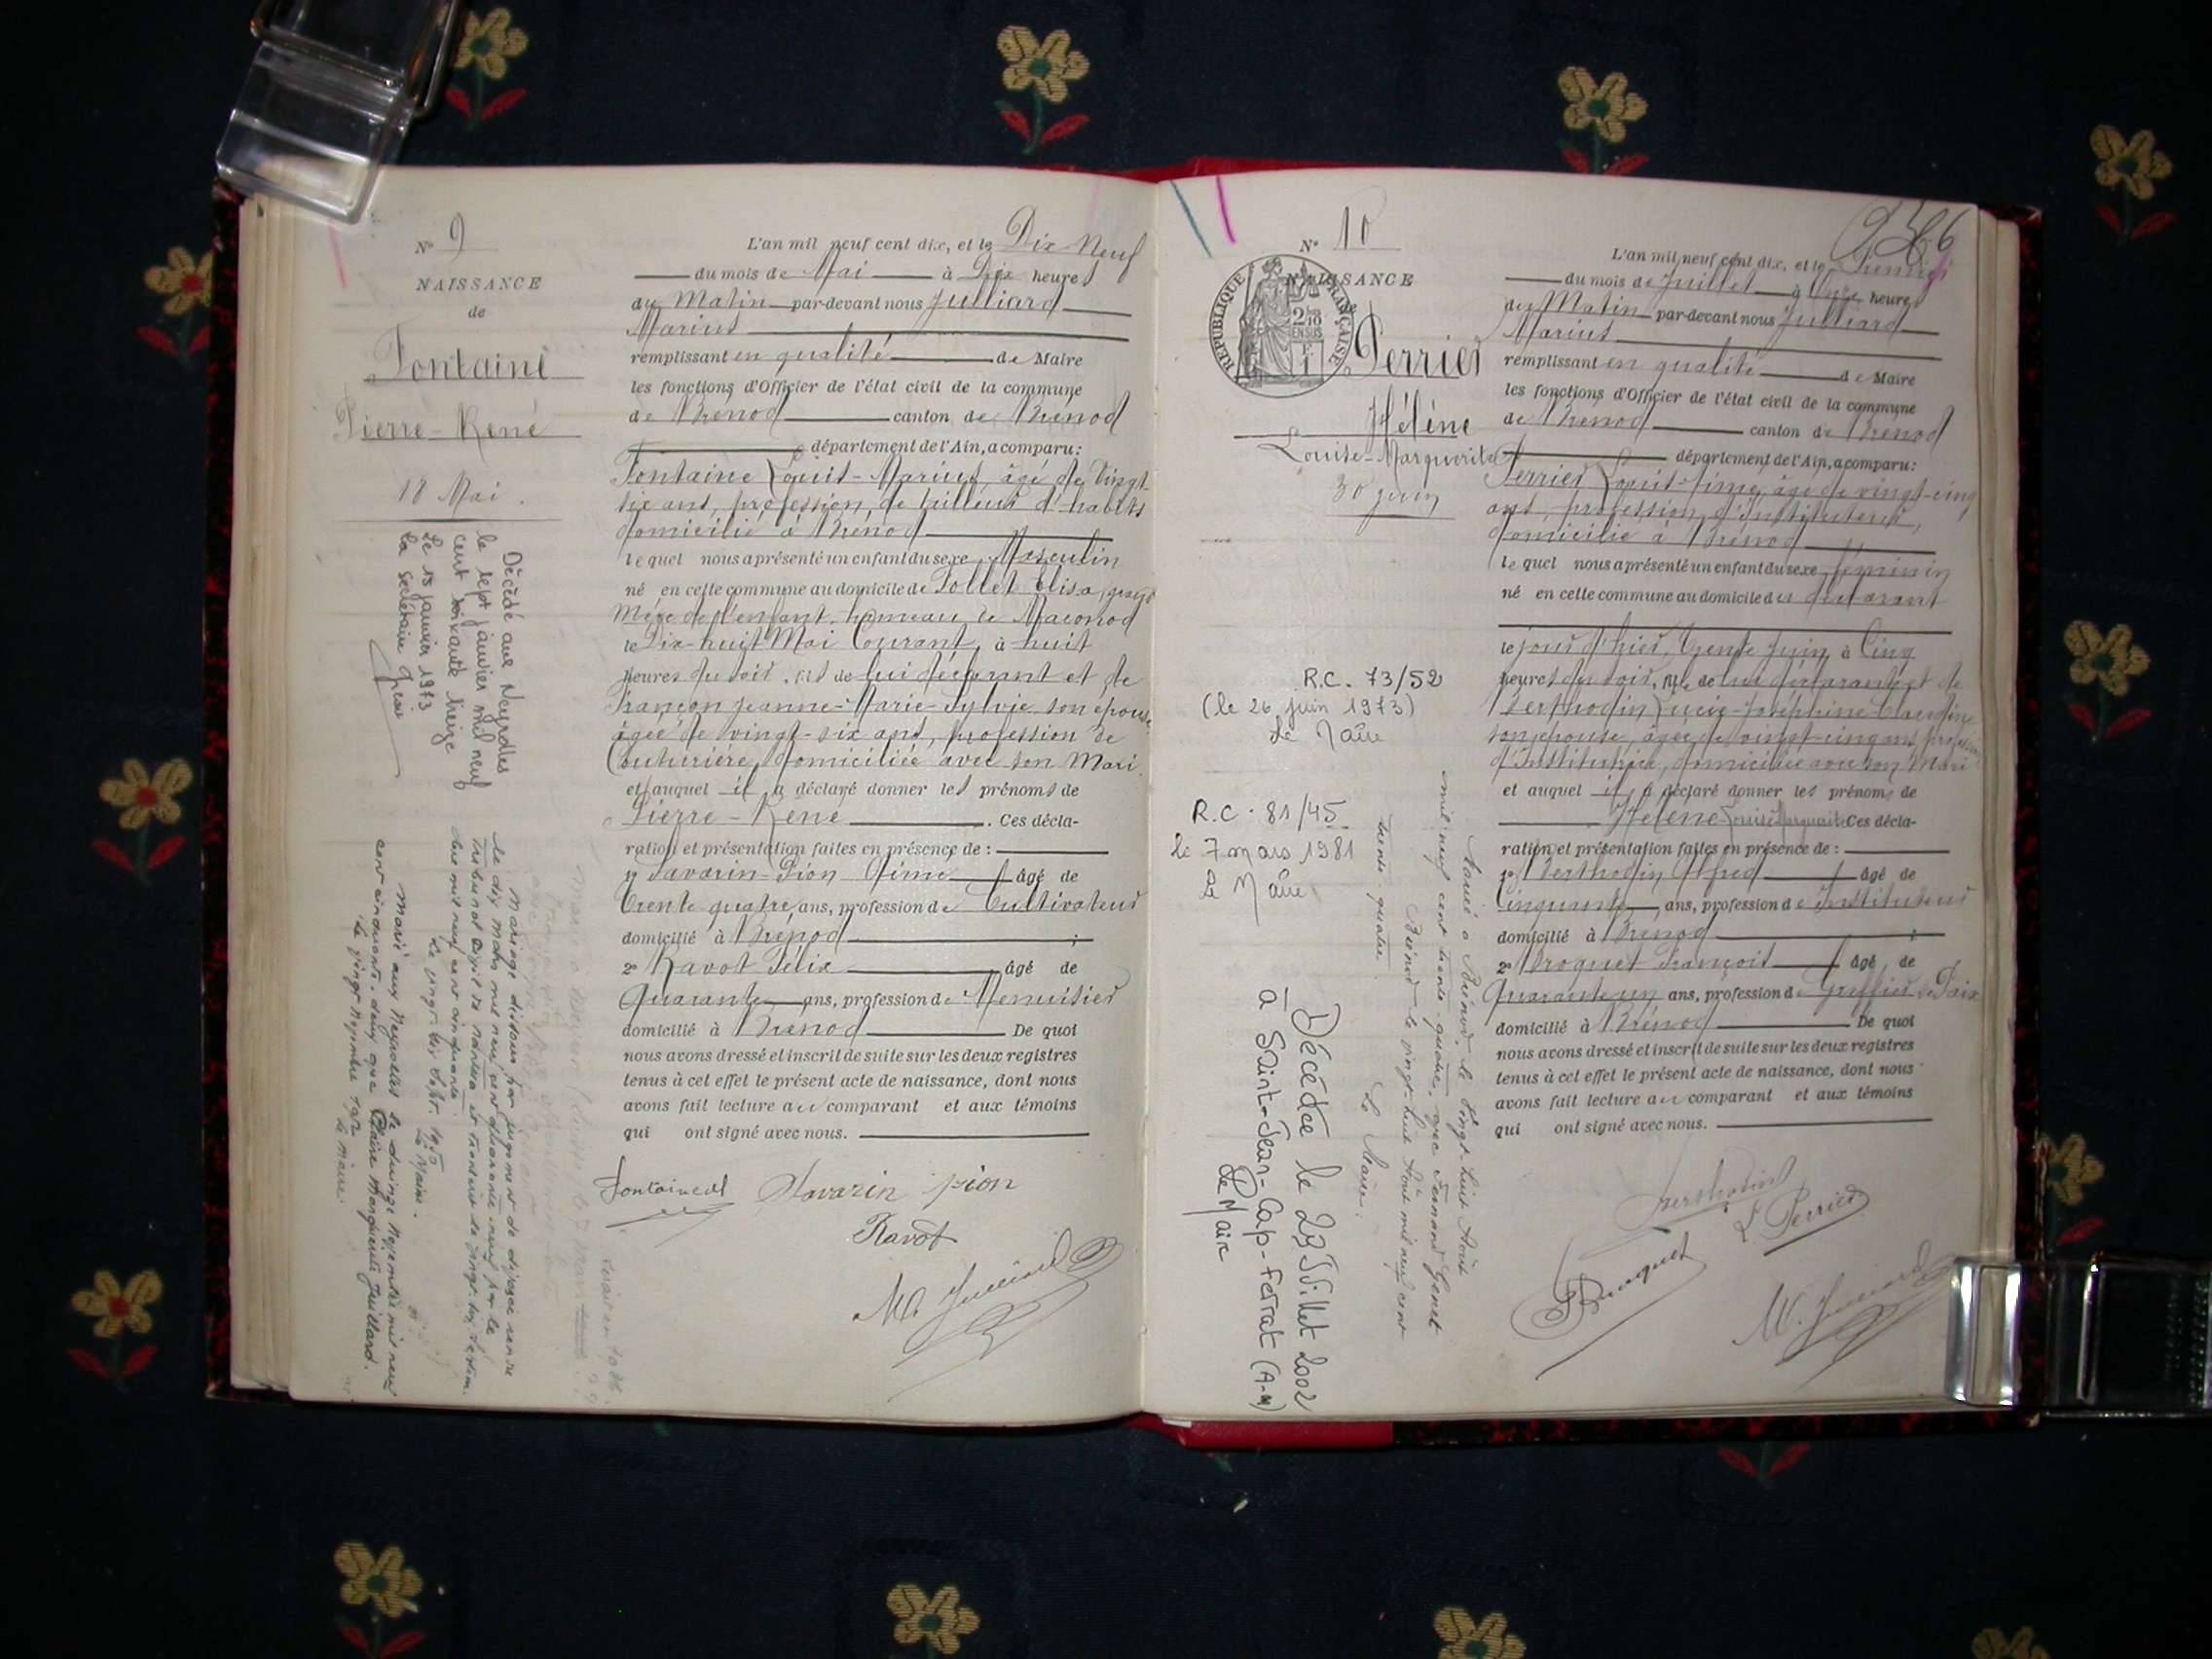 N° 9
NAISSANCE
de
Fontaine
Pierre-René
18 Mai.
Décédé aux Neyrolles
le sept janvier mil neuf
cent soixante treize
Le 15 janvier 1973
La secrétaire
Mariage dissous par jugement de divorce rendu
le dix mars mil neuf cent quarante neuf par le
tribunal civil de Nantua et transcrit le vingt six septem.
bre mil neuf cent cinquante.
Le vingt six Sept. 1950
Le Maire.
Marié aux Neyrolles le quinze Novembre mil neuf
cent cinquante-deux avec Claire Marguerite Juillard.
Le vingt Novembre 1952
Le maire:
L'an mil neuf cent dix, et le Dix Neuf
du mois de Mai à Dix heures
du Matin par-devant nous Julliard
Marius
remplissant en qualité de Maire
les fonctions d'Officier de l'état civil de la commune
de Brénod canton de Brénod
département de l'Ain, a comparu:
Fontaine Louis-Marius, âgé de Vingt
six ans, profession de tailleur d'habits
domicilié à Brénod
lequel nous a présenté un enfant du sexe Masculin
né en cette commune au domicile de Follet Elisa, grand
Mère de l'enfant, hameau de Maconod
le Dix-huit Mai Courant, à huit
heures du soir, fils de lui déclarant et de
Françon Jeanne-Marie-Sylvie son épouse
âgée de vingt-six ans, profession de
Couturière, domiciliée avec son Mari
et auquel il a déclaré donner les prénoms de
Pierre-René. Ces décla-
ration et présentation faites en présence de:
1° Savarin-Pion Aimé âgé de
Trente quatre ans, profession de Cultivateur
domicilié à Brénod;
2° Ravot Félix âgé de
Quarante ans, profession de Menuisier
domicilié à Brénod De quoi
nous avons dressé et inscrit de suite sur les deux registres
tenus à cet effet le présent acte de naissance, dont nous
avons fait lecture au comparant et aux témoins
qui ont signé avec nous.
Fontaine Savarin pion
Ravot
M. Julliard
N° 10
NAISSANCE
de
REPUBLIQUE FRANÇAISE
2/10
EN SUS
Perrier
Hélène
Louise-Marguerite
30 juin
R.C. 73/52
(le 26 juin 1973)
Le Maire
R.C. 81/45
le 7 mars 1981
Le Maire
Mariée à Brénod, le vingt huit Août
mil neuf cent trente quatre, avec Fernand Genet
Brénod le vingt huit Août mil neuf cent
trente-quatre.
Le Maire:
Décédée le 29 Juillet 2002
à Saint-Jean-Cap-Ferrat (A-M)
Le Maire
L'an mil neuf cent dix, et le Premier
du mois de Juillet à Onze heures
du Matin par-devant nous Julliard
Marius
remplissant en qualité de Maire
les fonctions d'Officier de l'état civil de la commune
de Brénod canton de Brénod
département de l'Ain, a comparu:
Perrier Louis-Aimé, âgé de vingt-cinq
ans, profession d'Instituteur,
domicilié à Brénod
lequel nous a présenté un enfant du sexe féminin
né en cette commune au domicile du déclarant
le jour d'hier, trente Juin, à Cinq
heures du soir, fille de lui déclarant et de
Berthodin Lucie-Joséphine-Claudine
son épouse, âgée de vingt-cinq ans, profession
d'Institutrice, domiciliée avec son Mari
et auquel il a déclaré donner les prénoms de
Hélène Louise Marguerite Ces décla-
ration et présentation faites en présence de:
1° Berthodin Alfred âgé de
Cinquante ans, profession de Instituteur
domicilié à Brénod;
2° Broquet François âgé de
Quarante un ans, profession de Greffier de Paix
domicilié à Brénod De quoi
nous avons dressé et inscrit de suite sur les deux registres
tenus à cet effet le présent acte de naissance, dont nous
avons fait lecture au comparant et aux témoins
qui ont signé avec nous.
Berthodin
L Perrier
Broquet
M. Julliard